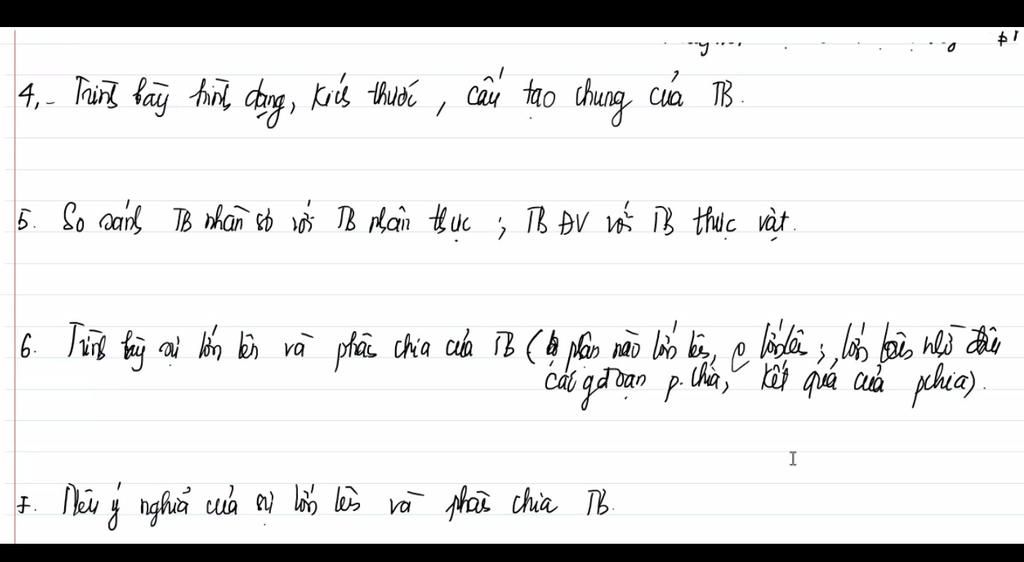 4,- Trình bày hình dạng, kích thước, cấu tạo chung của TB.
5. So sánh TB nhân sơ với TB nhân thực ; TB ĐV với TB thực vật.
6. Trình bày sự lớn lên và phân chia của TB ( phần nào lớn lên, lớn lên ; lớn lên nhờ đâu
các gđoạn p.chia, kết quả của pchia).
7. Nêu ý nghĩa của sự lớn lên và phân chia TB.